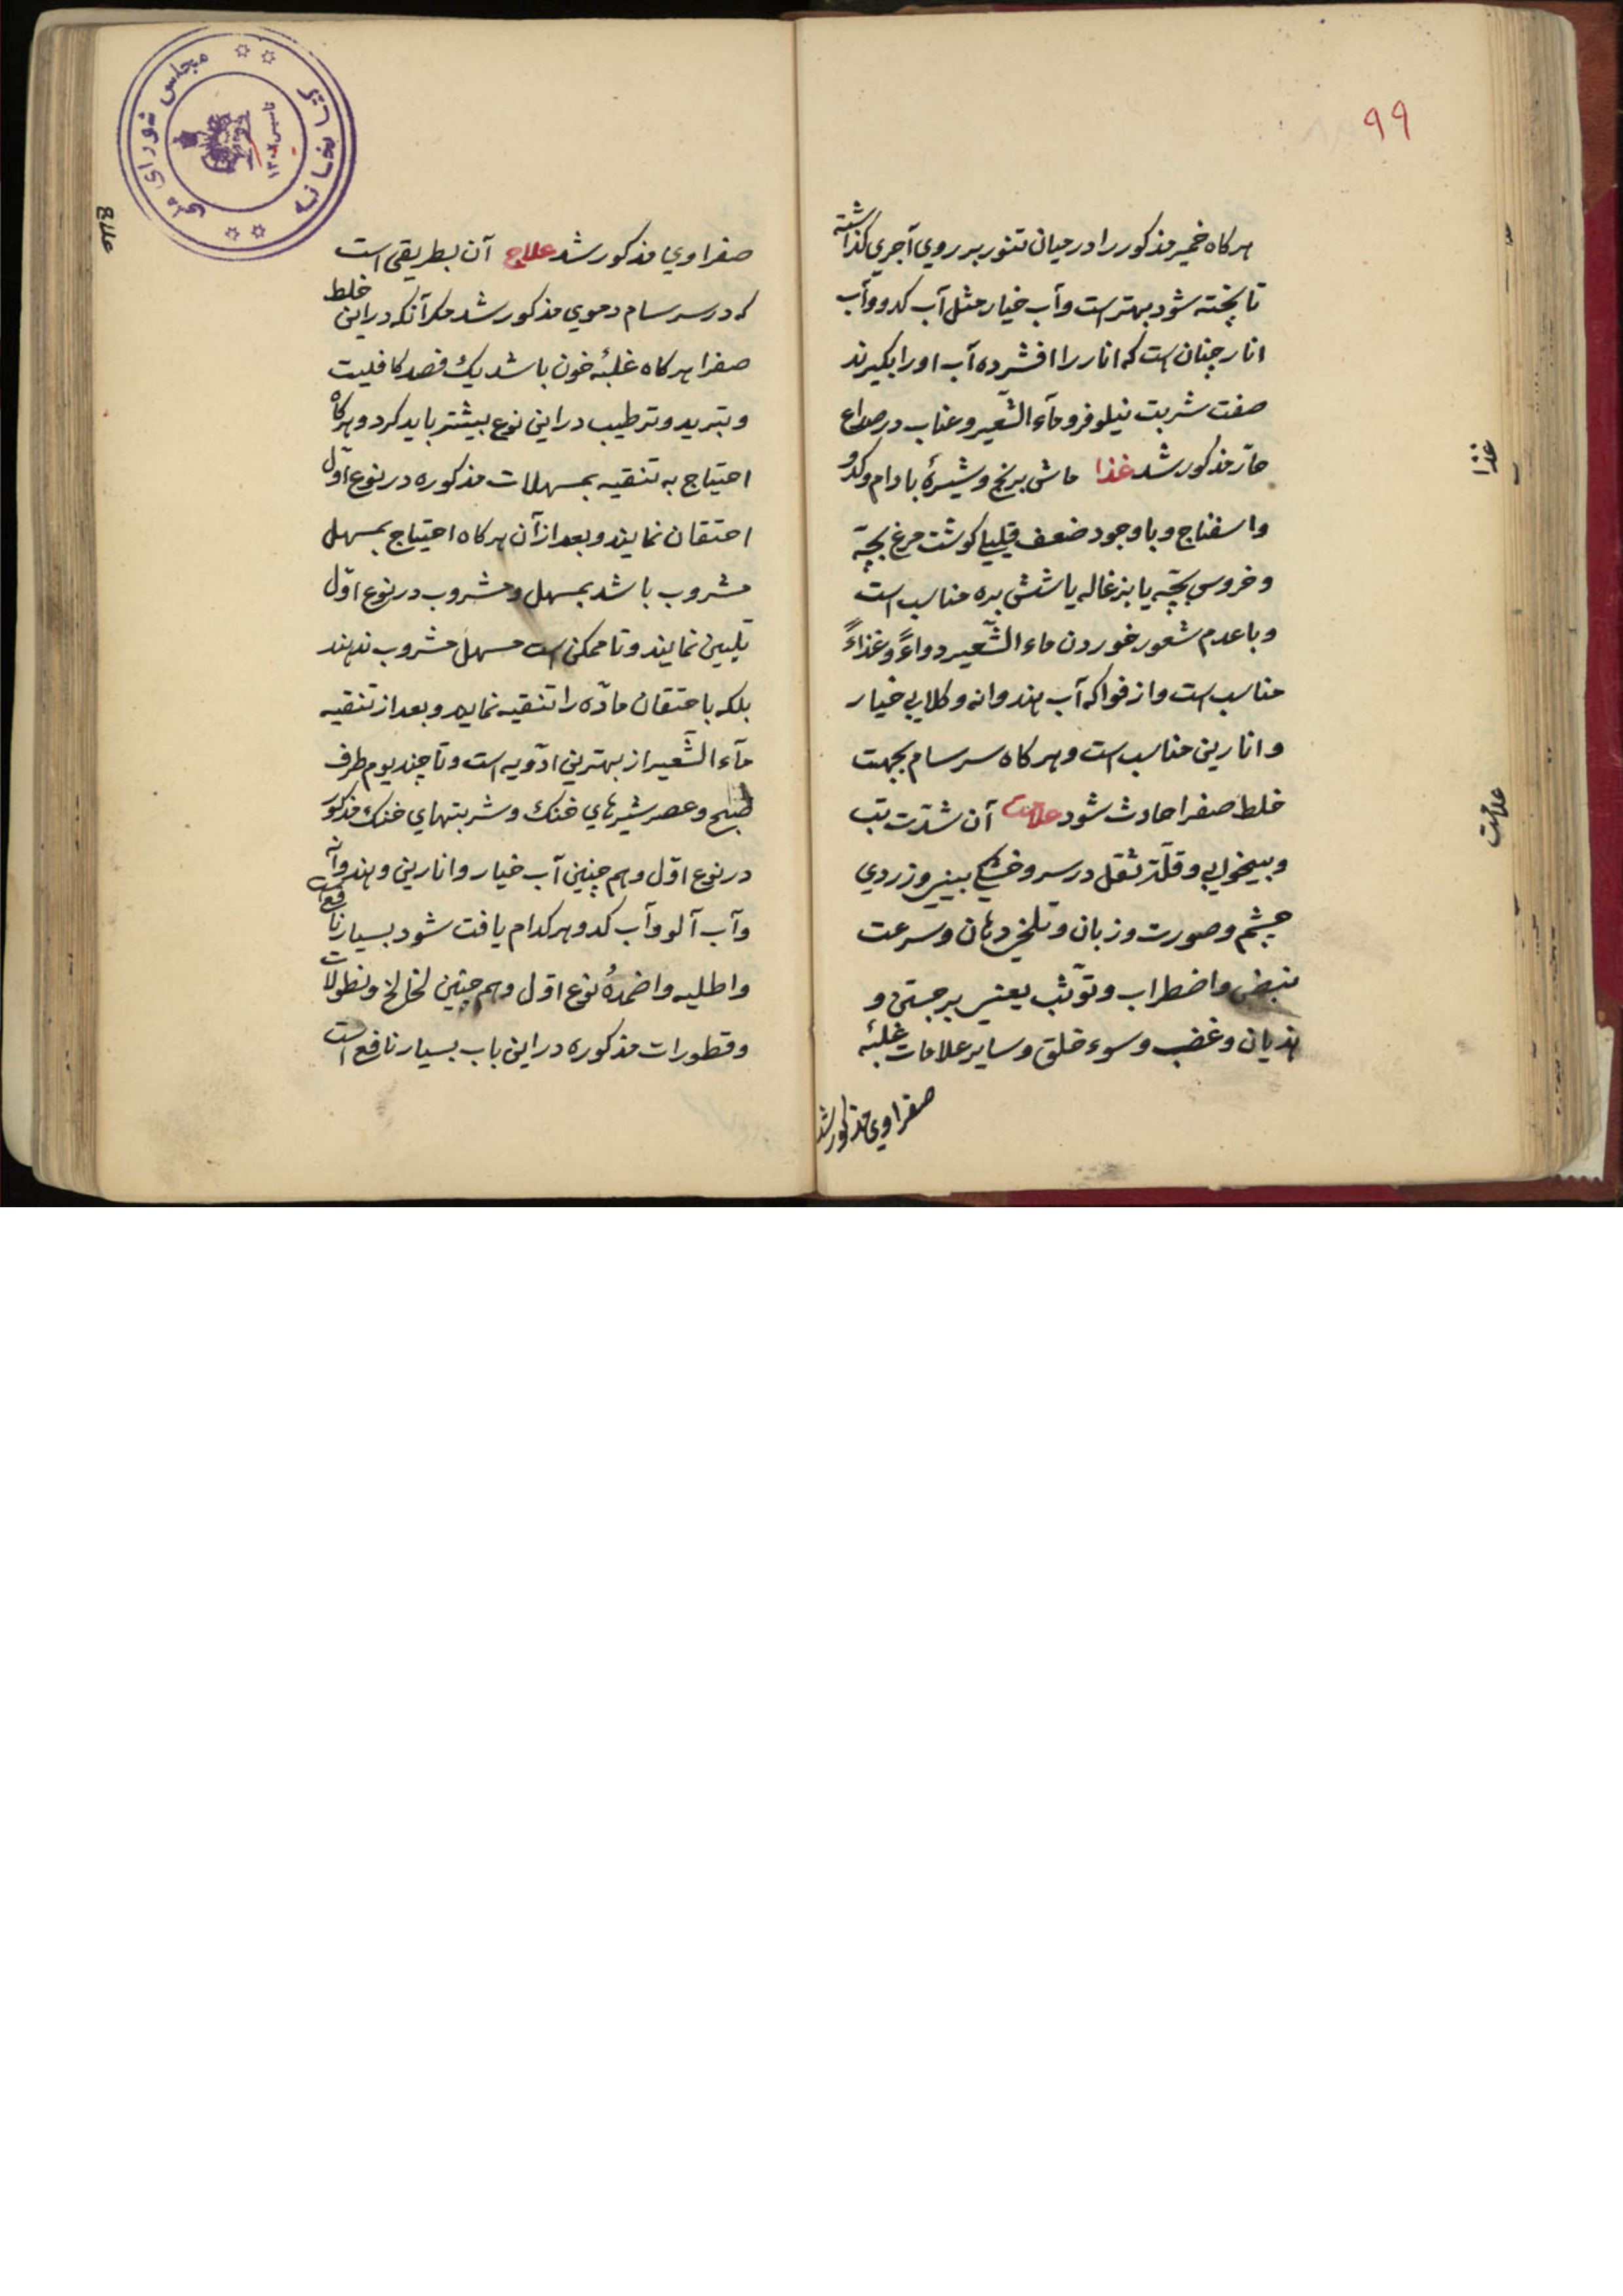 ۹۹
هرکاه خمیر مذکور را در میان تنور بر روی آجری کذاشته
تا پخته شود بهتر است و آب خیار مثل آب کدو و آب
انار چنان است که انار را افشرده آب او را بکیرند
صفت شربت نیلوفر و مآء الشّعیر و عناب در صداع
حارّ مذکور شد غذا ماش برنج و شیرهٔ بادام و کدو
و اسفناج و با وجود ضعف قلیلی کوشت مرغ بچّه
و خروس بچّه یا بزغاله یا شش بره مناسب است
و با عدم شعور خوردن ماء الشّعیر دواءً و غذاءً
مناسب است و از فواکه آب هندوانه و کلابی خیار
و انارین مناسب است و هرکاه سرسام بجهت
خلط صفرا حادث شود علامت آن شدّت تب
و بیخوابی و قلّت ثقل در سر و خشکی بینی و زردی
چشم و صورت و زبان و تلخی دهان و سرعت
نبض و اضطراب و توثّب یعنی برجستن و
هذیان و غضب و سوء خلق و سایر علامات غلبهٔ
صفراوی مذکور شد
غذا
علامت
صفراوی مذکور شد علاج آن بطریقی است
که در سرسام دموی مذکور شد مکر آنکه در این خلط
صفرا هرکاه غلبهٔ خون باشد یک فصد کافیست
و تبرید و ترطیب در این نوع بیشتر باید کرد و هرکاه
احتیاج به تنقیه بمسهلات مذکوره در نوع اوّل
احتقان نمایند و بعد از آن هرکاه احتیاج بمسهل
مشروب باشد بمسهل مشروب در نوع اوّل
تلیین نمایند و تا ممکن است مسهل مشروب ندهند
بلکه باحتقان مادّه را تنقیه نمایند و بعد از تنقیه
مآء الشّعیر از بهترین ادویه است و تا چند یوم طرف
صبح و عصر شیرهای خنک و شربتهای خنک مذکور
در نوع اوّل و هم چنین آب خیار و انارین و هندوانه
و آب آلو و آب کدو هر کدام یافت شود بسیار نافع است
و اطلیه و اضمدهٔ نوع اوّل و هم چنین لخالخ و نطولات
و قطورات مذکوره در این باب بسیار نافع است
علاج
کتابخانه مجلس شورای ملی